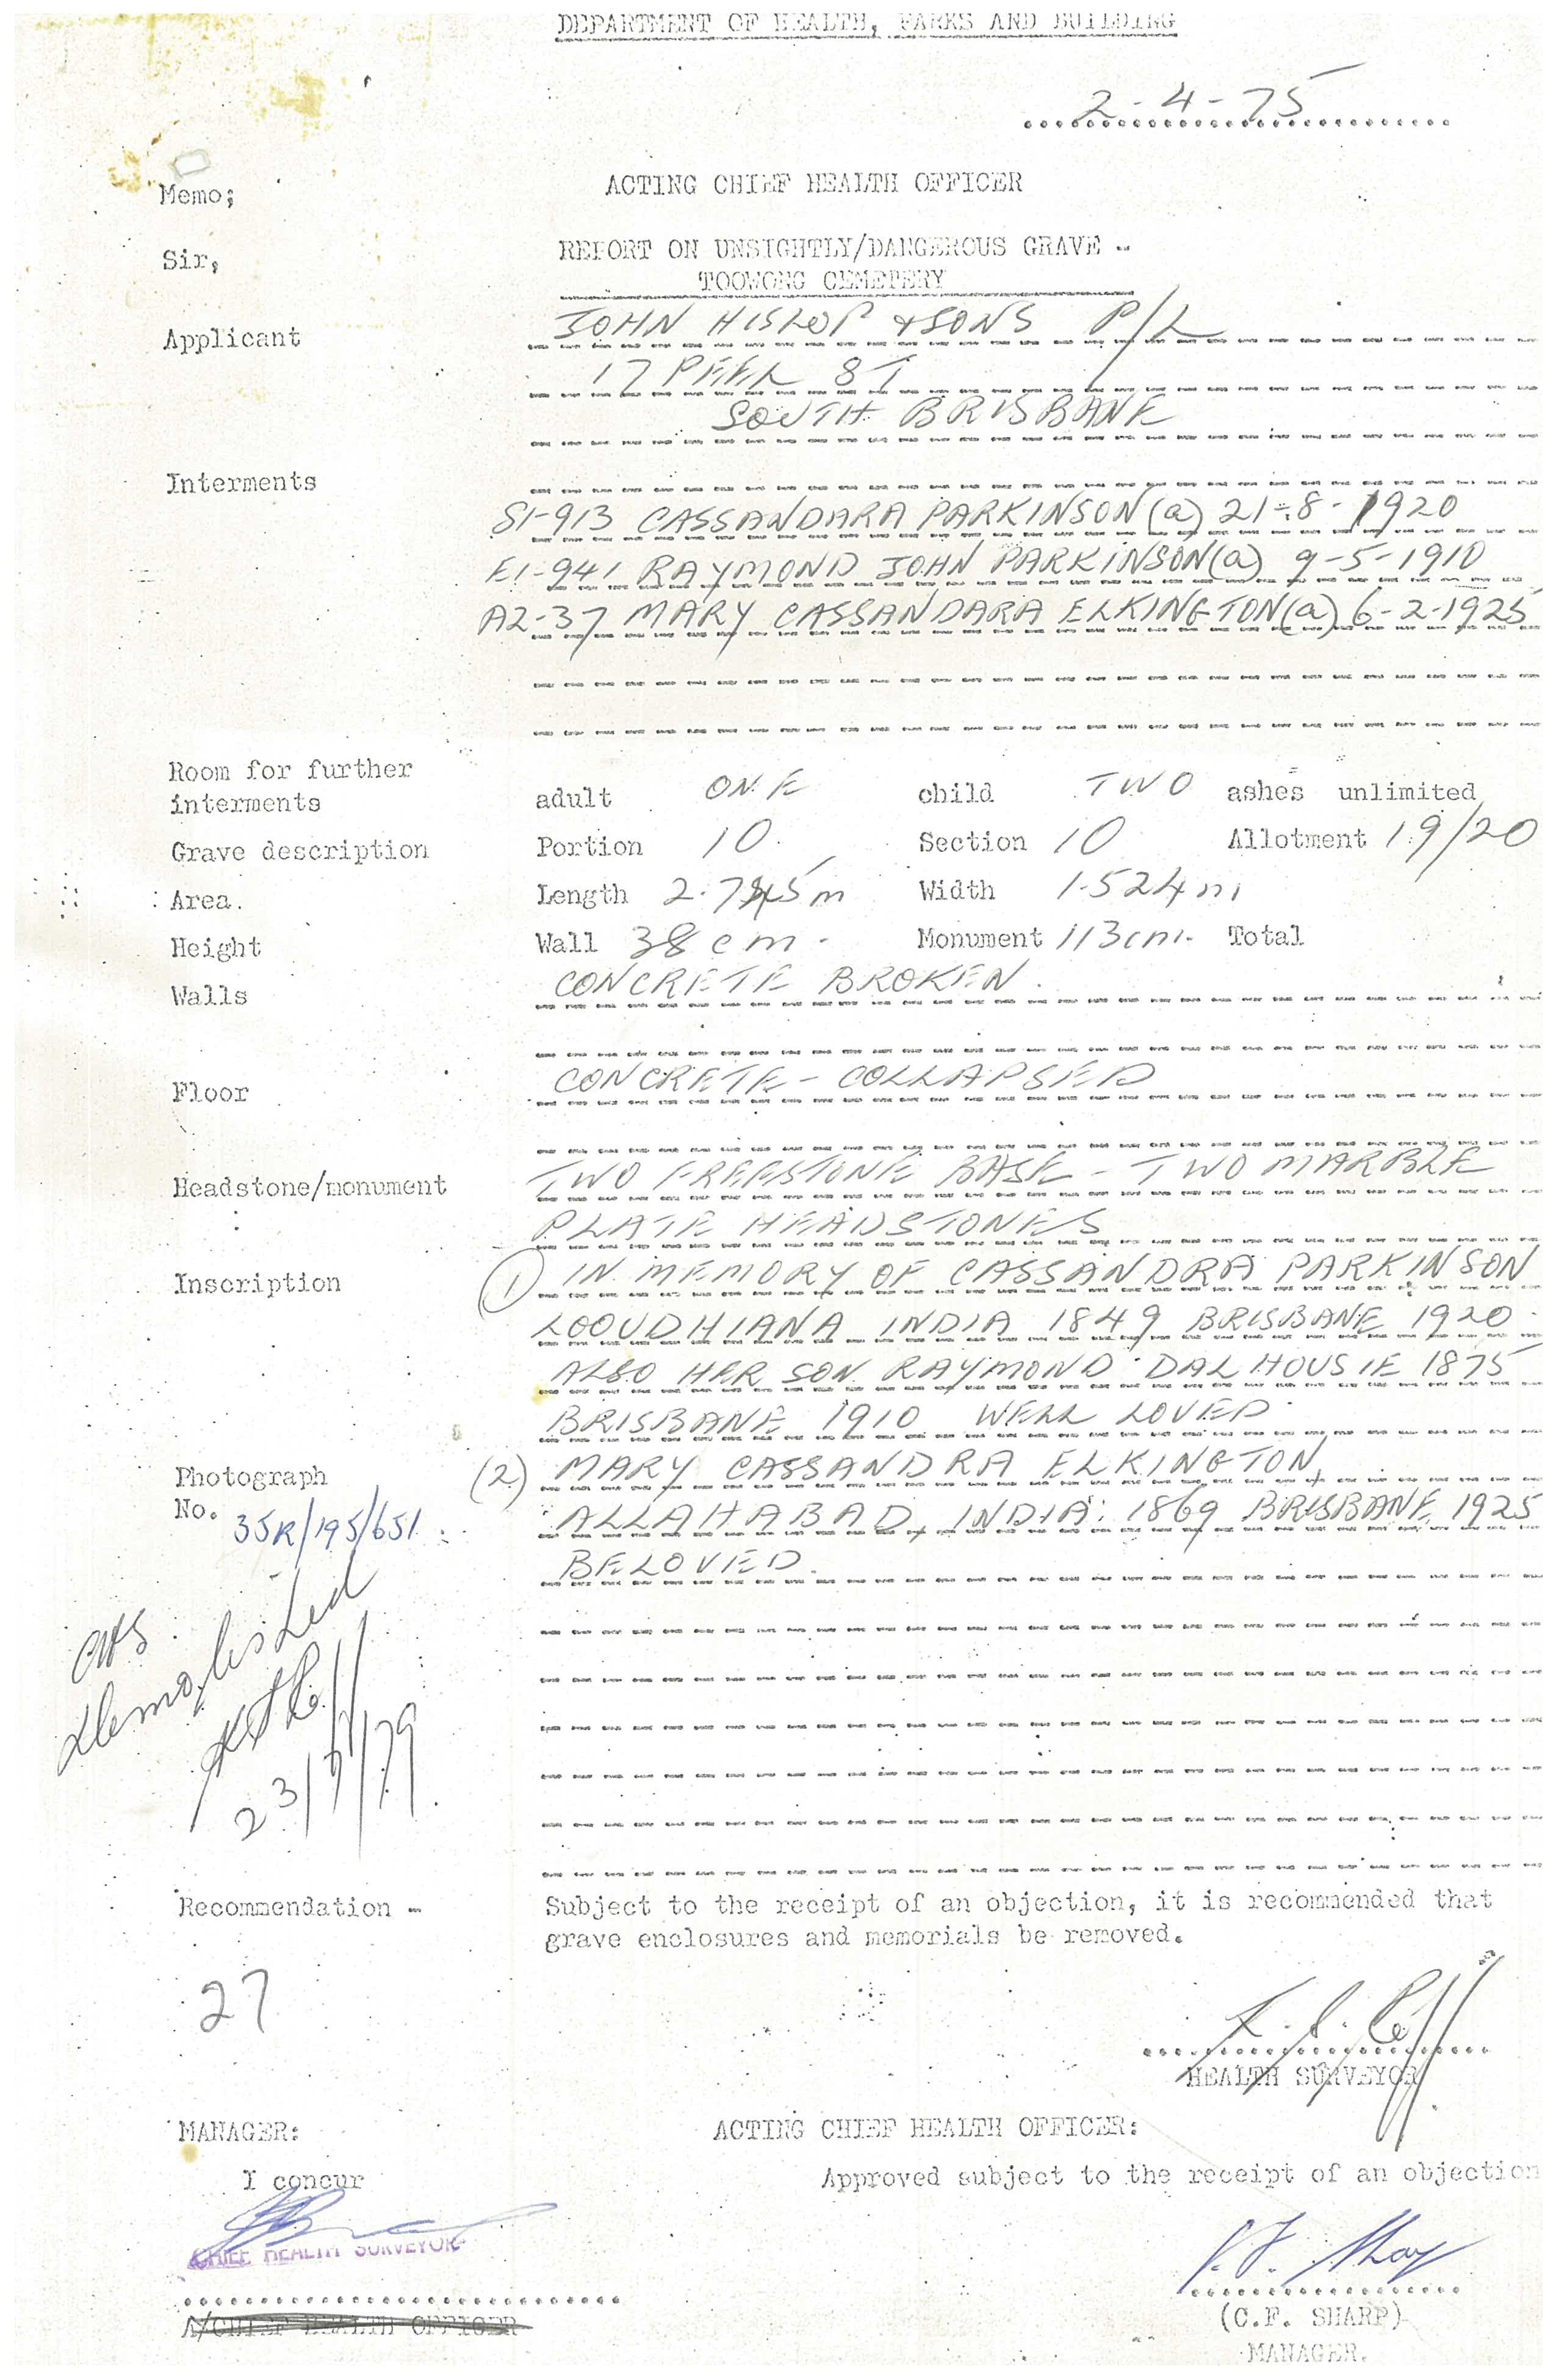 DEPARTMENT OF HEALTH, PARKS AND BUILDING
2-4-75
Memo; ACTING CHIEF HEALTH OFFICER
Sir, REPORT ON UNSIGHTLY/DANGEROUS GRAVE -
TOOWONG CEMETERY
Applicant JOHN HISLOP & SONS P/L
17 PEEL ST
SOUTH BRISBANE
Interments
S1-913 CASSANDARA PARKINSON (a) 21-8-1920
E1-941 RAYMOND JOHN PARKINSON (a) 9-5-1910
A2-37 MARY CASSANDARA ELKINGTON (a) 6-2-1925
Room for further
interments adult ONE child TWO ashes unlimited
Grave description Portion 10 Section 10 Allotment 19/20
Area. Length 2.745m Width 1.524m
Height Wall 38cm. Monument 113cm. Total
Walls CONCRETE BROKEN.
Floor CONCRETE - COLLAPSED
Headstone/monument TWO FREESTONE BASE - TWO MARBLE
PLATE HEADSTONES
Inscription (1) IN MEMORY OF CASSANDRA PARKINSON
LOOUDHIANA INDIA 1849 BRISBANE 1920.
ALSO HER SON RAYMOND DALHOUSIE 1875
BRISBANE 1910 WELL LOVED.
Photograph (2) MARY CASSANDRA ELKINGTON,
No. 35R/195/651 ALLAHABAD, INDIA: 1869 BRISBANE 1925
BELOVED.
Demolished
23/7/79
Recommendation - Subject to the receipt of an objection, it is recommended that
grave enclosures and memorials be removed.
27
HEALTH SURVEYOR
MANAGER: ACTING CHIEF HEALTH OFFICER:
I concur Approved subject to the receipt of an objection
CHIEF HEALTH SURVEYOR
A/CHIEF HEALTH OFFICER
(C.F. SHARP)
MANAGER.